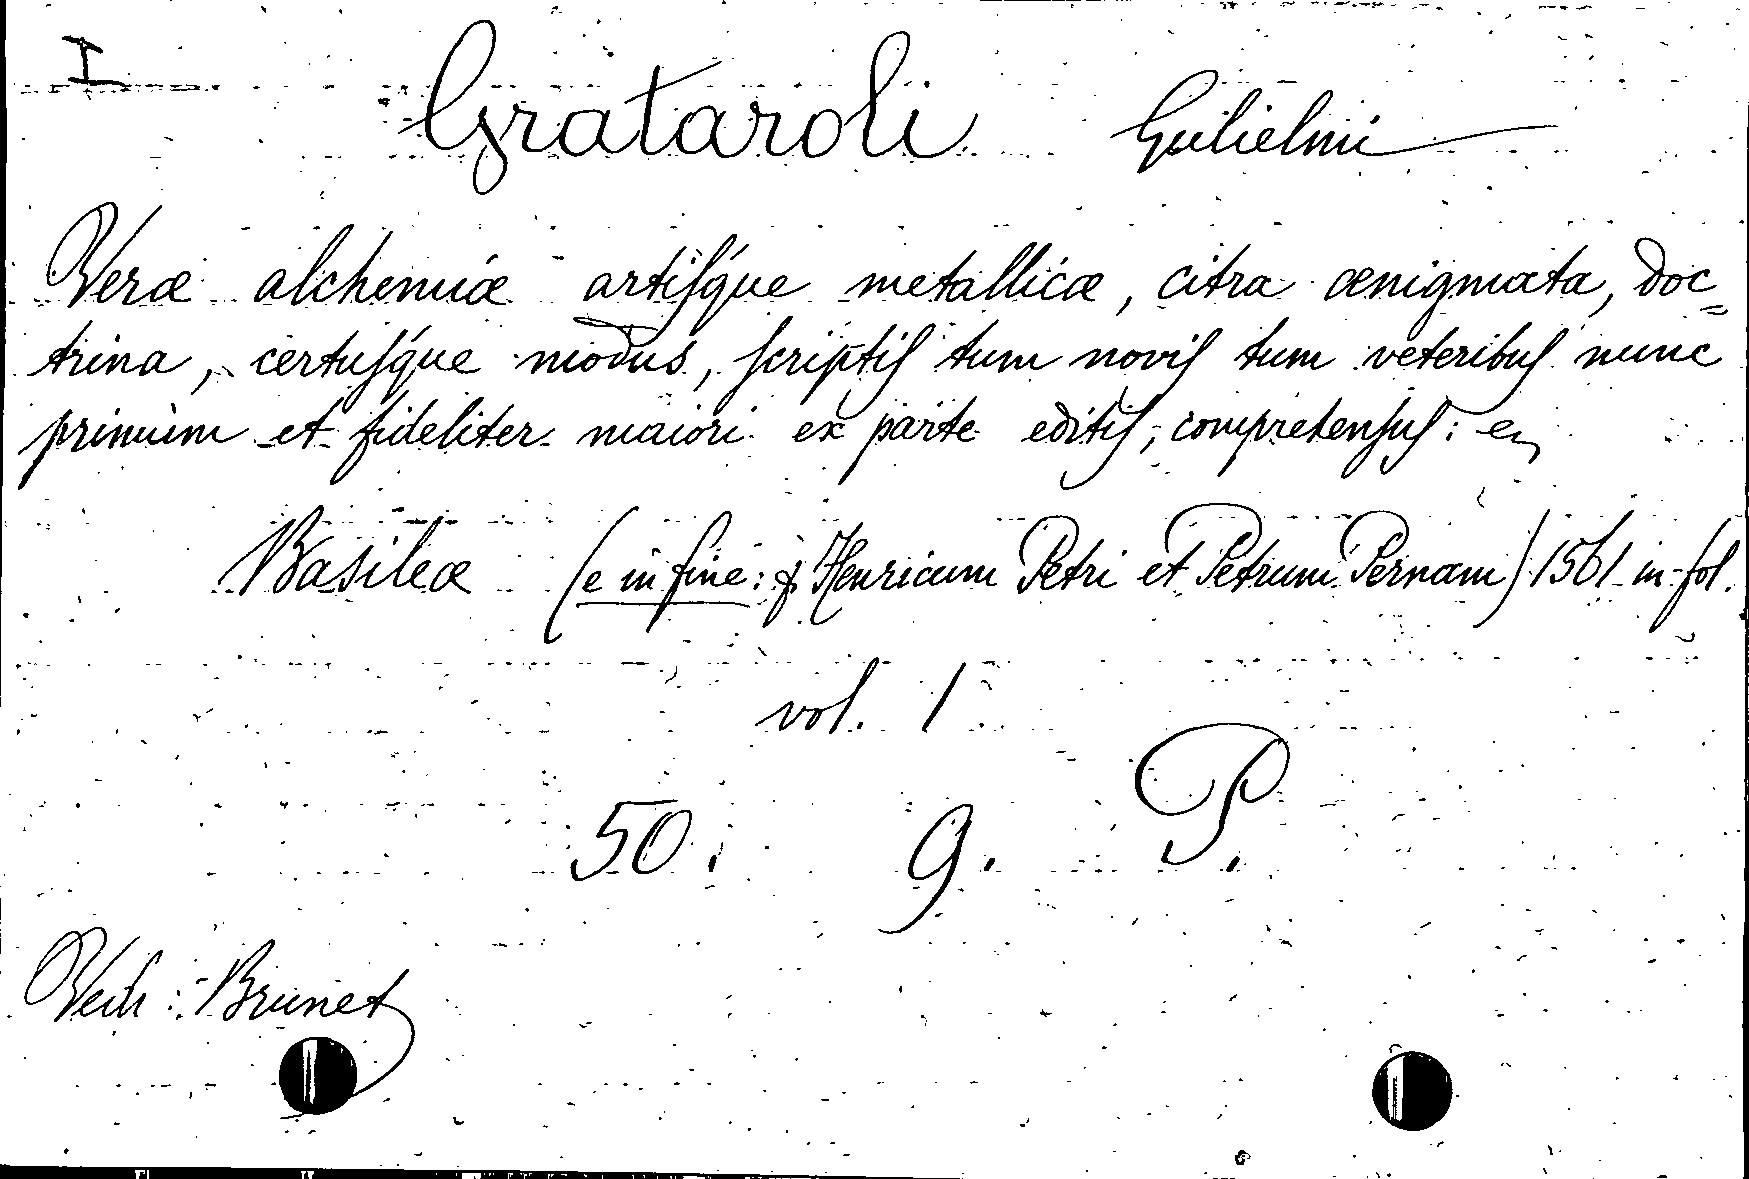 I
Grataroli Gulielmi
Veræ alchemiæ artiſq́ue metallicæ, citra ænigmata, doc=
trina, certuſq́ue modus, ſcriptiſ tum noviſ tum veteribuſ nunc
primùm et fideliter maiori ex parte editiſ, comprehenſuſ: 
Basileæ (e in fine: Henricum Petri et Petrum Pernam) 1561 in-fol.
vol. 1
50. 9. P.
Vedi: Brunet